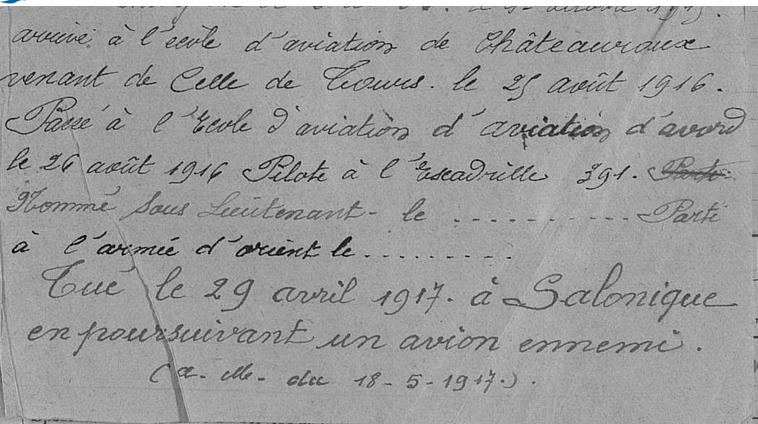 arrivé à l'école d'aviation de Châteauroux
venant de Celle de Tours. le 25 août 1916.
Passé à l'Ecole d'aviation d'aviation d'avord
le 26 août 1916 Pilote à l'Escadrille 391. Parti
Nommé Sous Lieutenant - le ............ Parti
à l'armée d'orient le .........
Tué le 29 avril 1917. à Salonique
en poursuivant un avion ennemi.
(a. M. du 18-5-1917.).